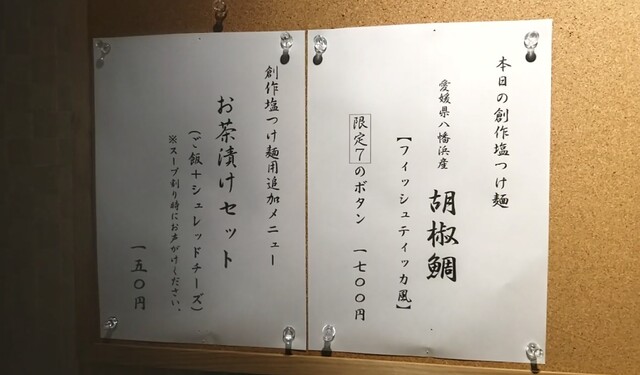 本日の創作塩つけ麺
愛媛県八幡浜産 胡椒鯛
【フィッシュティッカ風】
限定7のボタン 一七〇〇円
創作塩つけ麺用追加メニュー
お茶漬けセット
(ご飯+シュレッドチーズ)
※スープ割り時にお声がけください。
一五〇円